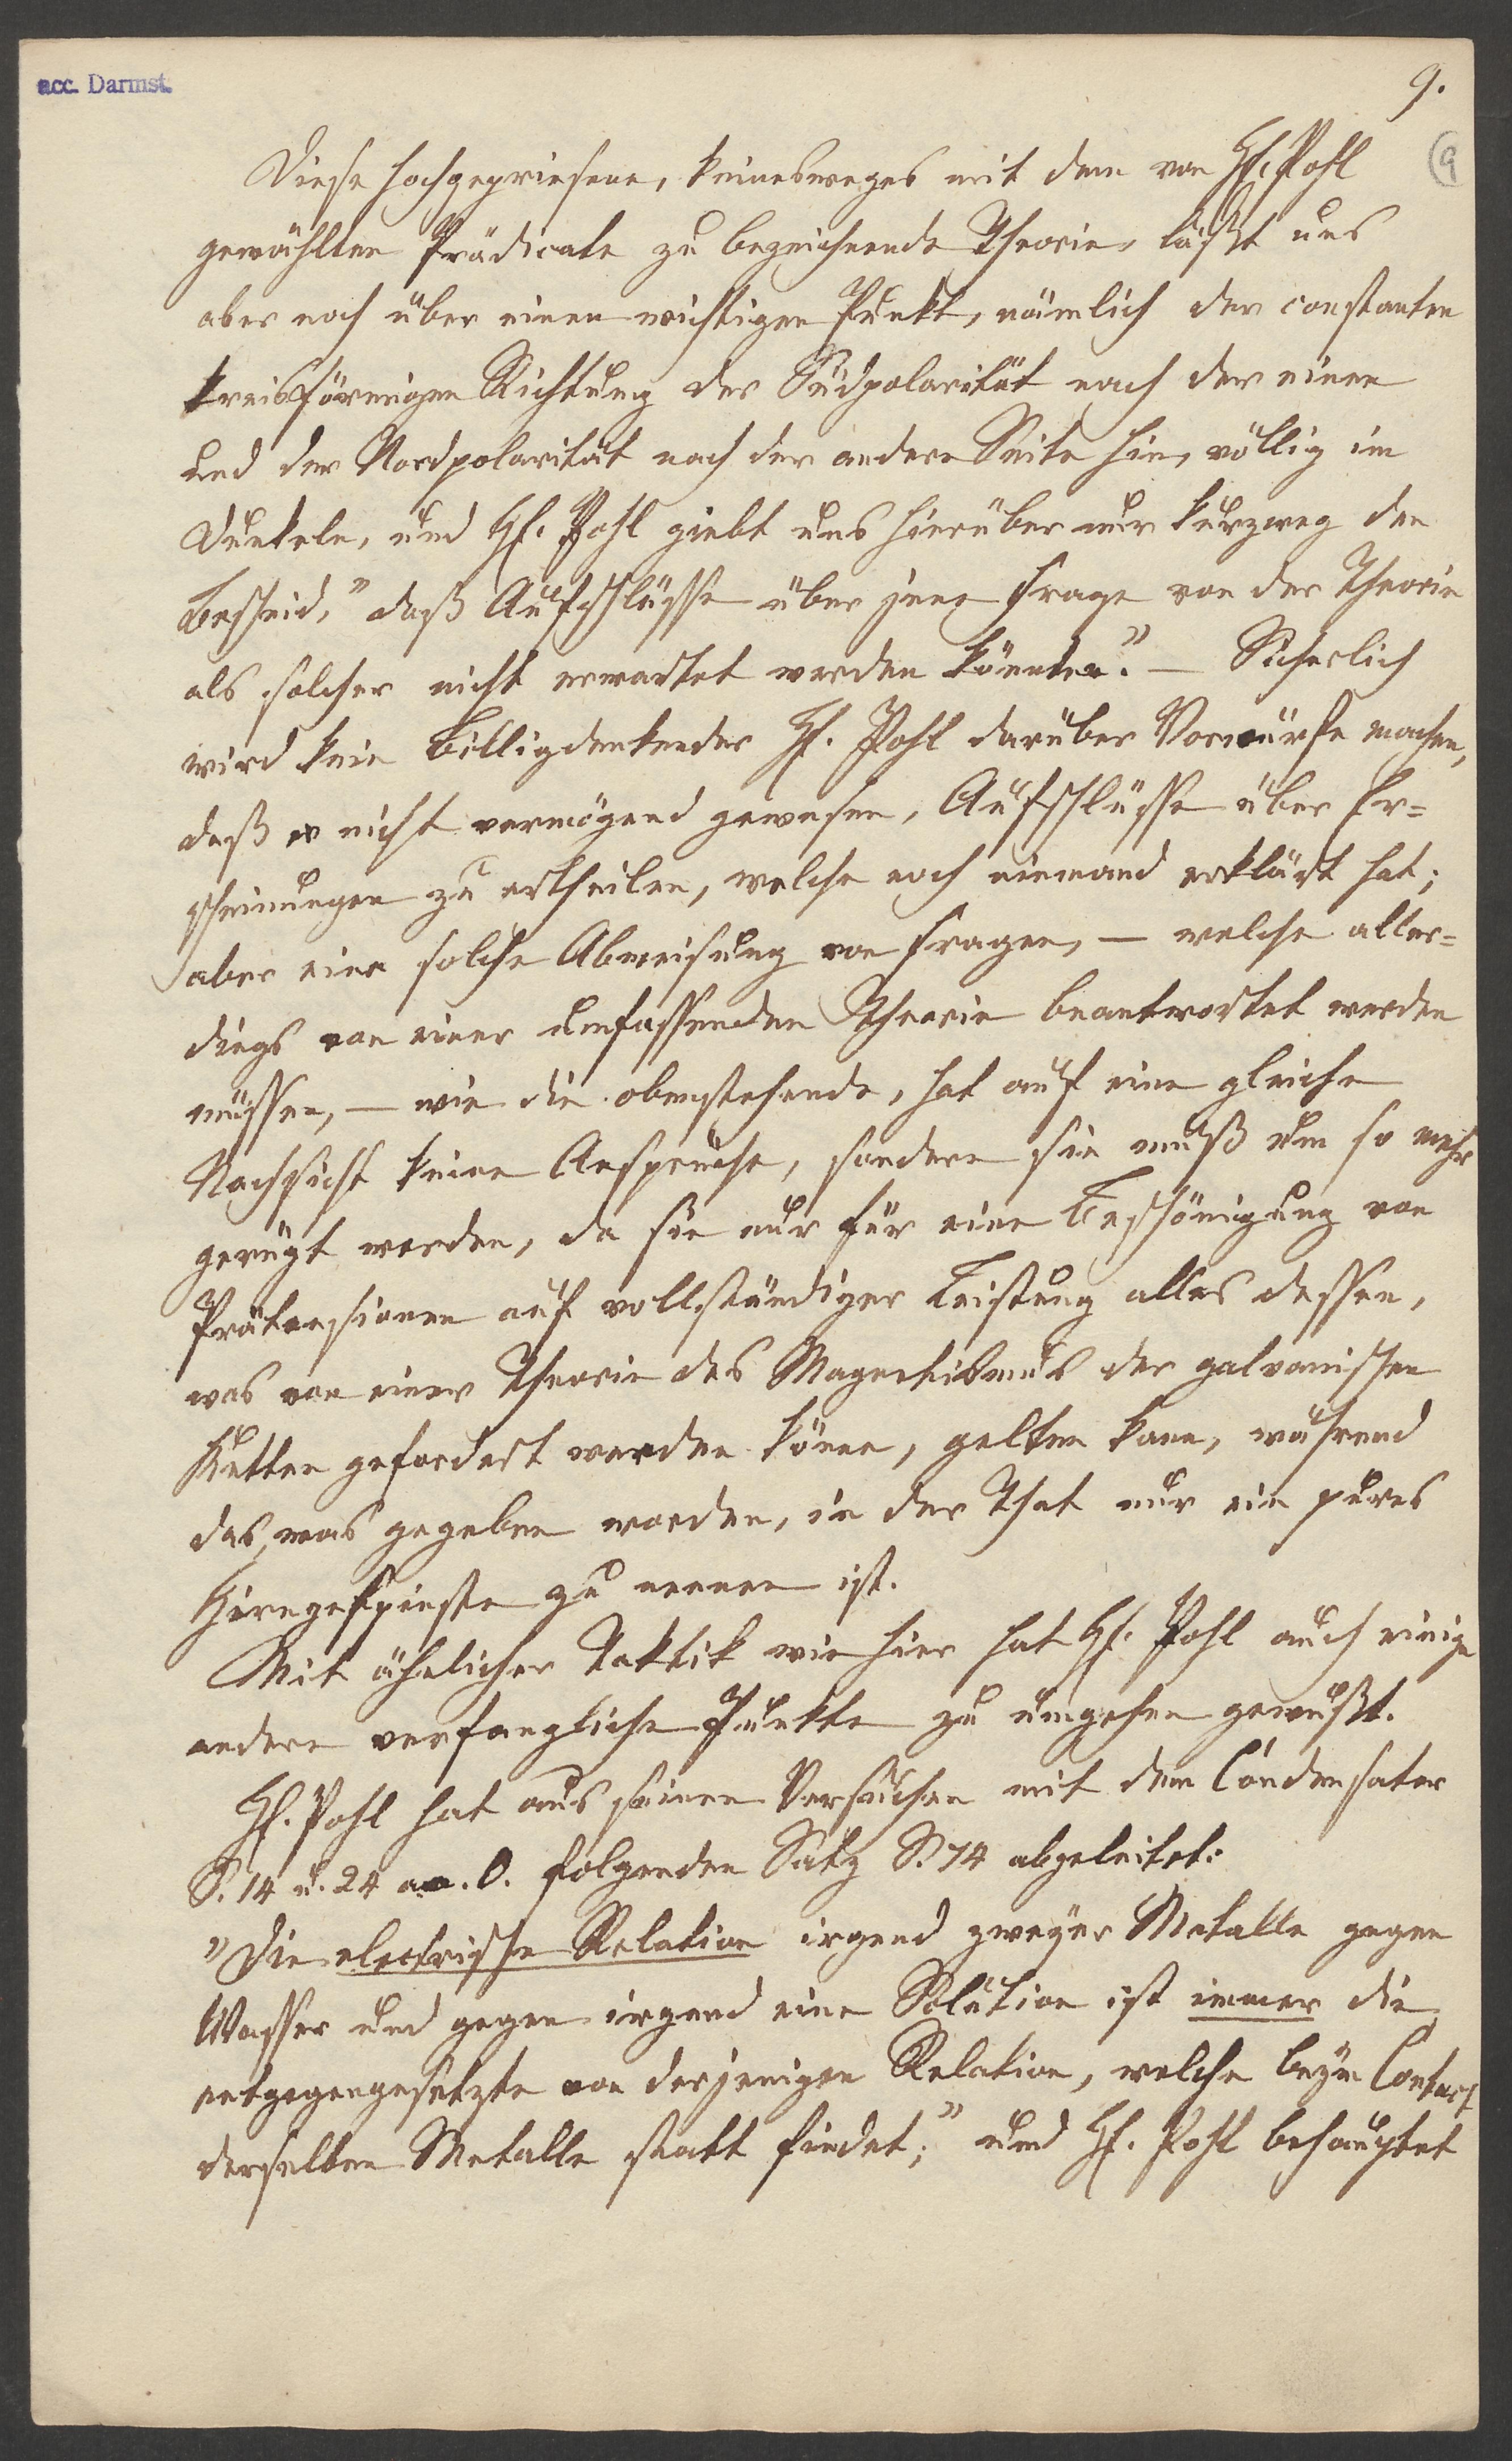 acc. Darmst.
9.
(9
Diese hochgepriesene, keinesweges mit dem von Hr. Pohl
gewählten Prädicate zu bezeichnende Theorie, läßt uns
aber noch über einen wichtigen Punkt, nämlich der constanten
kreisförmigen Richtung der Südpolarität nach der einen
und der Nordpolarität nach der andern Seite hin, völlig im
Dunkeln, und Hr. Pohl giebt uns hierüber nur kurzweg den
Bescheid, "daß Aufschlüsse über jene Frage von der Theorie
als solcher nicht erwartet werden könnten." — Sicherlich
wird kein Billigdenkender Hr. Pohl darüber Vorwürfe machen,
daß er nicht vermögend gewesen, Aufschlüsse über Er=
scheinungen zu ertheilen, welche noch niemand erklärt hat;
aber eine solche Abweisung von Fragen, — welche aller=
dings von einer umfassenden Theorie beantwortet werden
müssen, — wie die obenstehende, hat auf eine gleiche
Nachsicht keine Ansprüche, sondern sie muß um so mehr
gerügt werden, da sie nur für eine Beschönigung von
Prätensionen auf vollständiger Leistung alles dessen,
was von einer Theorie des Magnetismus der galvanischen
Ketten gefordert werden könne, gelten kann, während
das, was gegeben worden, in der That nur ein pures
Hirngespinste zu nennen ist.
Mit ähnlicher Taktik wie hier hat Hr. Pohl auch einige
andere verfängliche Punkte zu umgehen gewußt.
Hr. Pohl hat aus seinen Versuchen mit dem Condensator
S. 14 u. 24 a. O. folgenden Satz S. 74 abgeleitet:
"Die electrische Relation irgend zweyer Metalle gegen
Wasser und gegen irgend eine Solution ist immer die
entgegengesetzte von derjenigen Relation, welche beym Contact
derselben Metalle statt findet;" und Hr. Pohl behauptet